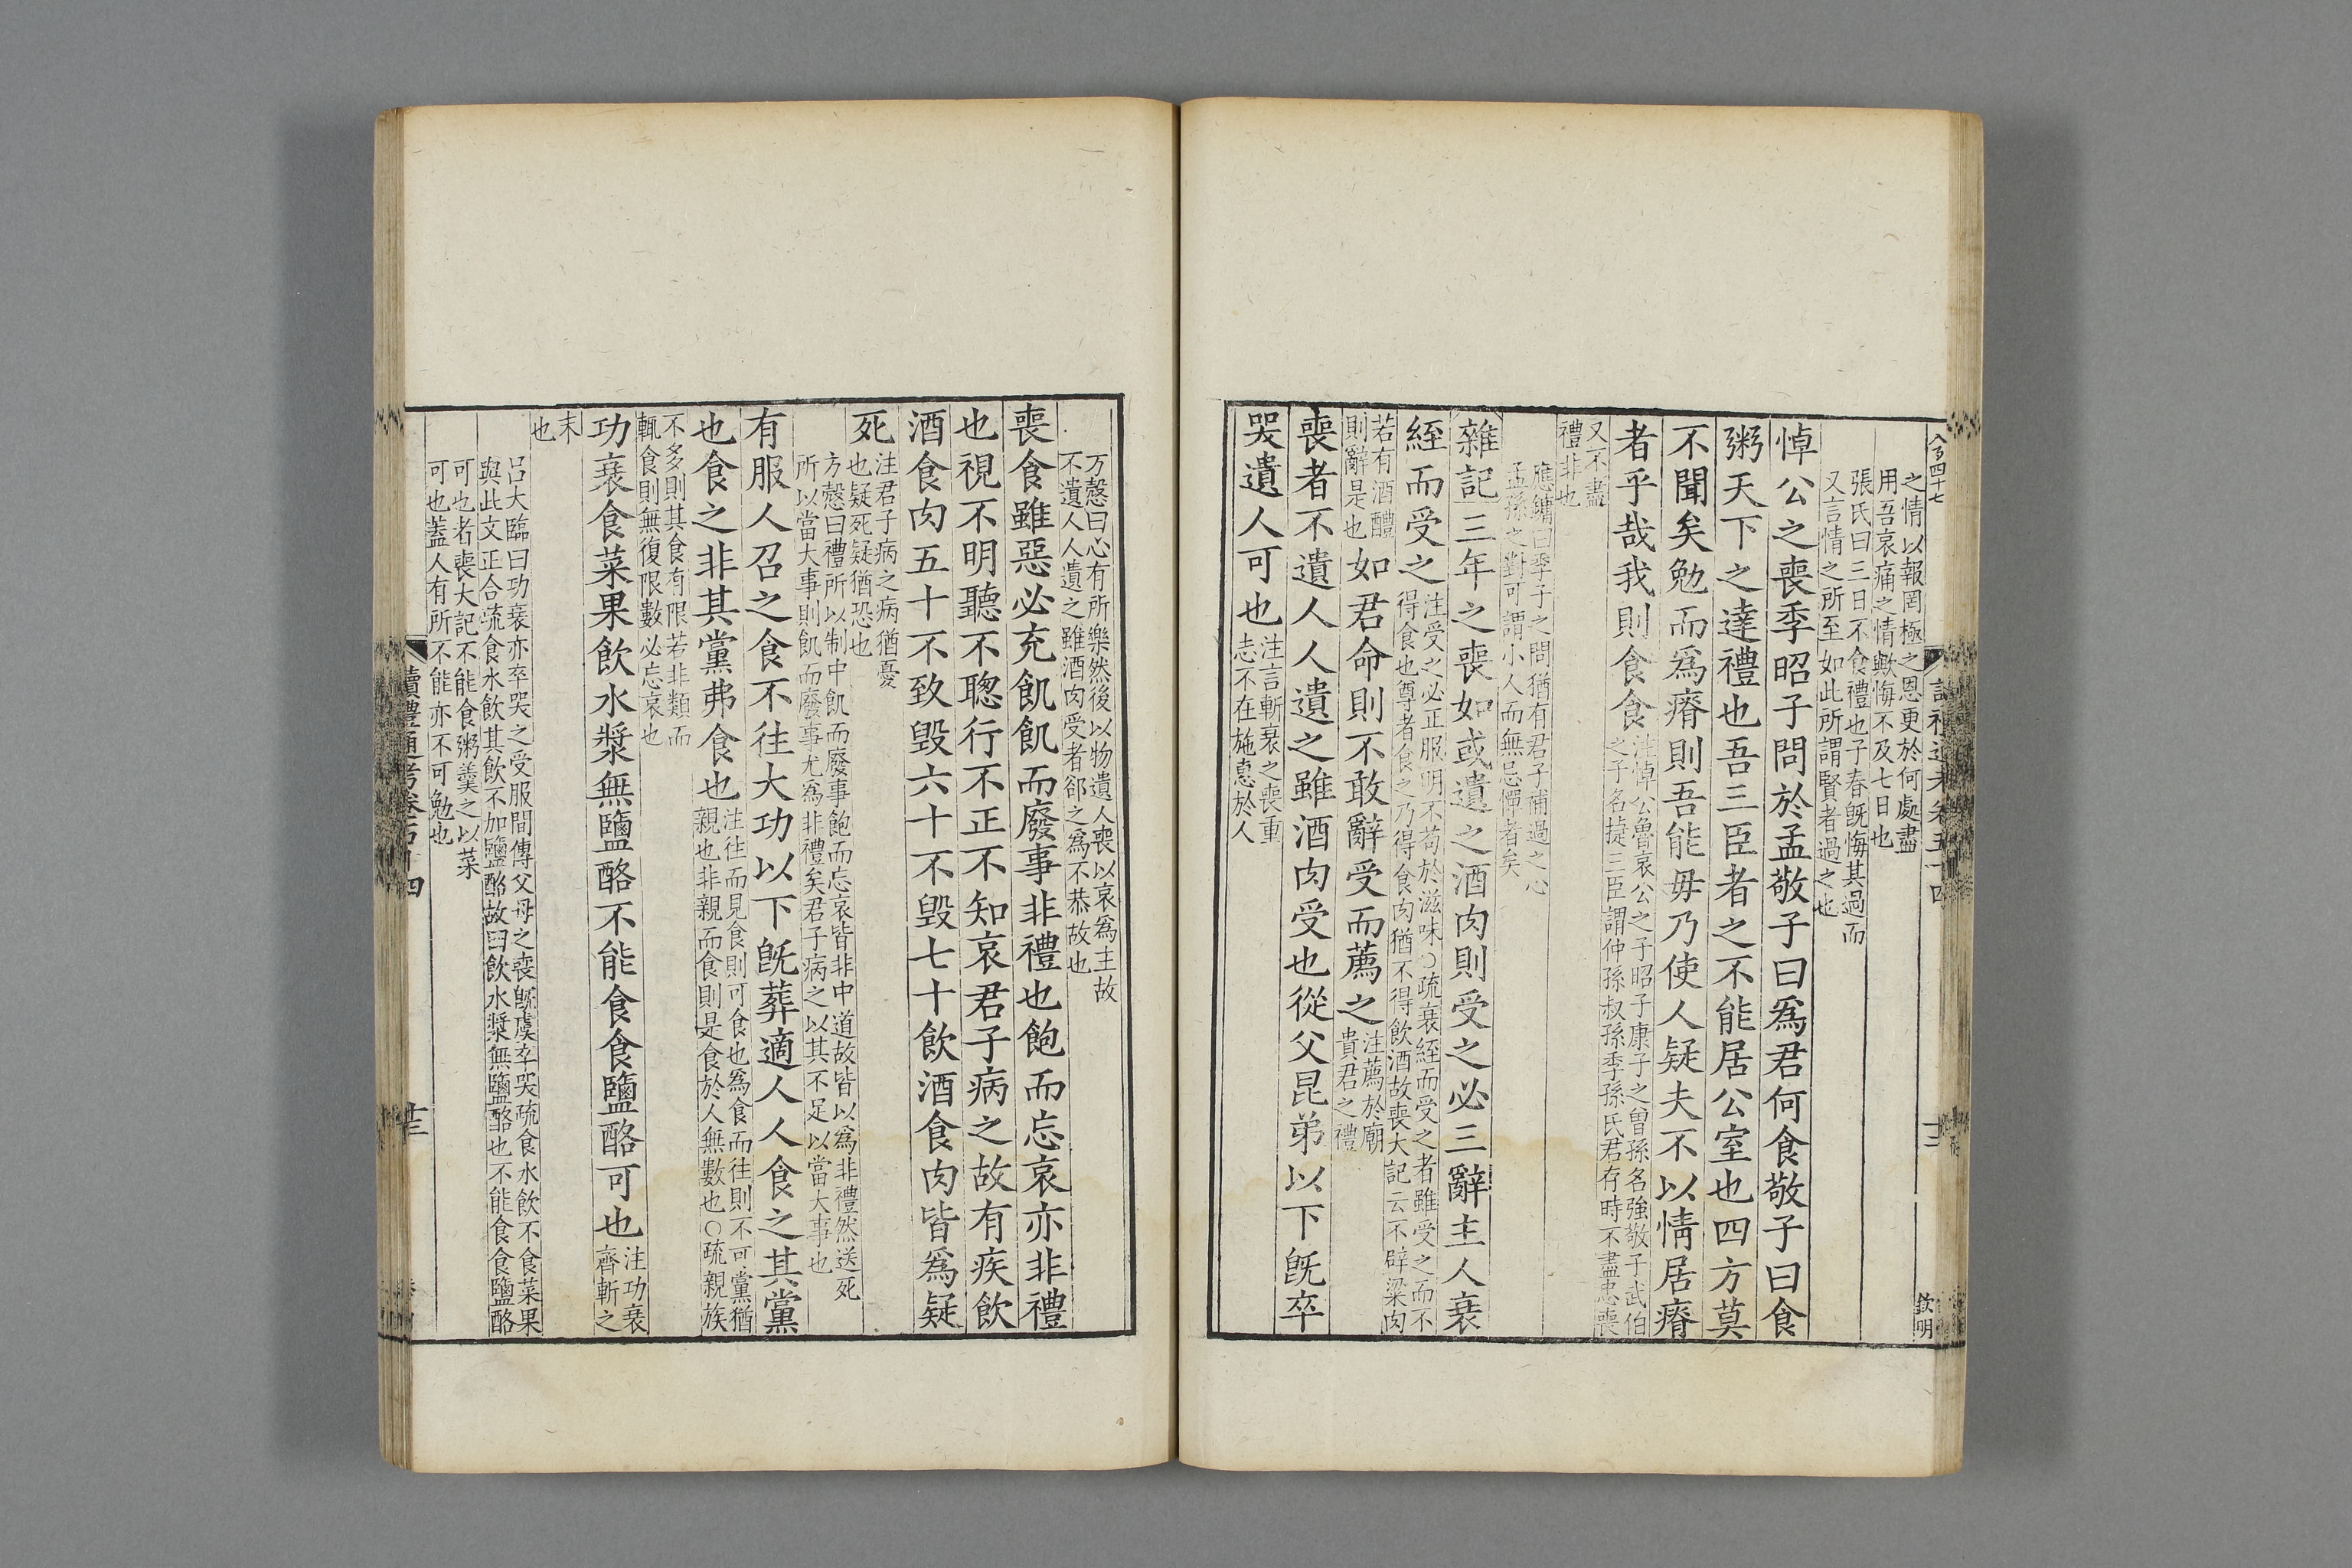 之情以報罔極之恩更於何處盡
用吾哀痛之情歟悔不及七日也
張氏曰三日不食禮也子春旣悔其過而
又言情之所至如此所謂賢者過之也
悼公之喪季昭子問於孟敬子曰爲君何食敬子曰食
粥天下之達禮也吾三臣者之不能居公室也四方莫
不聞矣勉而爲瘠則吾能毋乃使人疑夫不以情居瘠
者乎哉我則食食
注悼公魯哀公之子昭子康子之曾孫名強敬子武伯
之子名捷三臣謂仲孫叔孫季孫氏君存時不盡忠喪
又不盡
禮非也
應鏞曰季子之問猶有君子補過之心
孟孫之對可謂小人而無忌憚者矣
雜記三年之喪如或遺之酒肉則受之必三辭主人衰
絰而受之
注受之必正服明不苟於滋味○疏衰絰而受之者雖受之而不
得食也尊者食之乃得食肉猶不得飲酒故喪大記云不辟粱肉
若有酒醴
則辭是也
如君命則不敢辭受而薦之
注薦於廟
貴君之禮
喪者不遺人人遺之雖酒肉受也從父昆弟以下旣卒
哭遺人可也
注言斬衰之喪重
志不在施惠於人
十二
欽明
方慤曰心有所樂然後以物遺人喪以哀爲主故
不遺人人遺之雖酒肉受者郤之爲不恭故也
喪食雖惡必充飢飢而廢事非禮也飽而忘哀亦非禮
也視不明聽不聰行不正不知哀君子病之故有疾飲
酒食肉五十不致毀六十不毀七十飲酒食肉皆爲疑
死
注君子病之病猶憂
也疑死疑猶恐也
方慤曰禮所以制中飢而廢事飽而忘哀皆非中道故皆以爲非禮然送死
所以當大事則飢而廢事尤爲非禮矣君子病之以其不足以當大事也
有服人召之食不往大功以下旣葬適人人食之其黨
也食之非其黨弗食也
注往而見食則可食也爲食而往則不可黨猶
親也非親而食則是食於人無數也○疏親族
不多則其食有限若非類而
輒食則無復限數必忘哀也
功衰食菜果飲水漿無鹽酪不能食食鹽酪可也
注功衰
齊斬之
末
也
呂大臨曰功衰亦卒哭之受服間傳父母之喪旣虞卒哭疏食水飲不食菜果
與此文正合疏食水飲其飲不加鹽酪故曰飲水漿無鹽酪也不能食食鹽酪
可也者喪大記不能食粥羹之以菜
可也蓋人有所不能亦不可勉也
讀禮通考卷五十四
十三